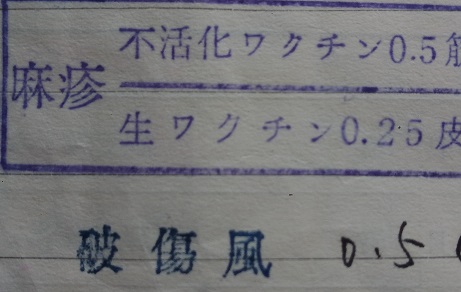 麻疹
不活化ワクチン0.5筋
生ワクチン0.25皮
破傷風 0.5